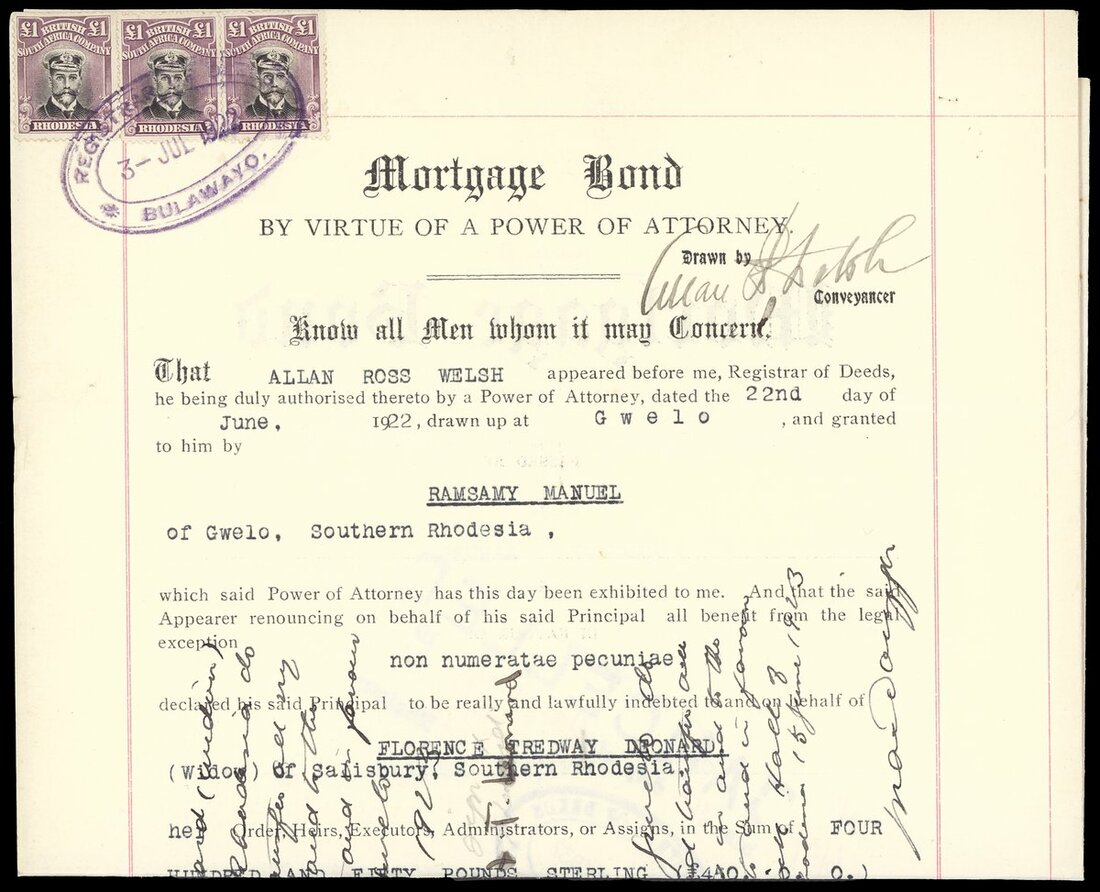 £1 BRITISH £1
SOUTH AFRICA COMPANY
RHODESIA
£1 BRITISH £1
SOUTH AFRICA COMPANY
RHODESIA
£1 BRITISH £1
SOUTH AFRICA COMPANY
RHODESIA
REGISTRAR
3-JUL 1922
BULAWAYO.
Mortgage Bond
BY VIRTUE OF A POWER OF ATTORNEY.
Drawn by
Allan R Welsh
Conveyancer
Know all Men whom it may Concern,
That ALLAN ROSS WELSH appeared before me, Registrar of Deeds,
he being duly authorised thereto by a Power of Attorney, dated the 22nd day of
June, 1922, drawn up at Gwelo , and granted
to him by
RAMSAMY MANUEL
of Gwelo, Southern Rhodesia ,
which said Power of Attorney has this day been exhibited to me. And that the said
Appearer renouncing on behalf of his said Principal all benefit from the legal
exception
non numeratae pecuniae
declared his said Principal to be really and lawfully indebted to and on behalf of
FLORENCE TREDWAY LEONARD,
(Widow) of Salisbury, Southern Rhodesia,
her Order, Heirs, Executors, Administrators, or Assigns, in the Sum of FOUR
HUNDRED AND FIFTY POUNDS STERLING (£450. 0. 0.)
Rhodesia do
and in favour
15 June 1923